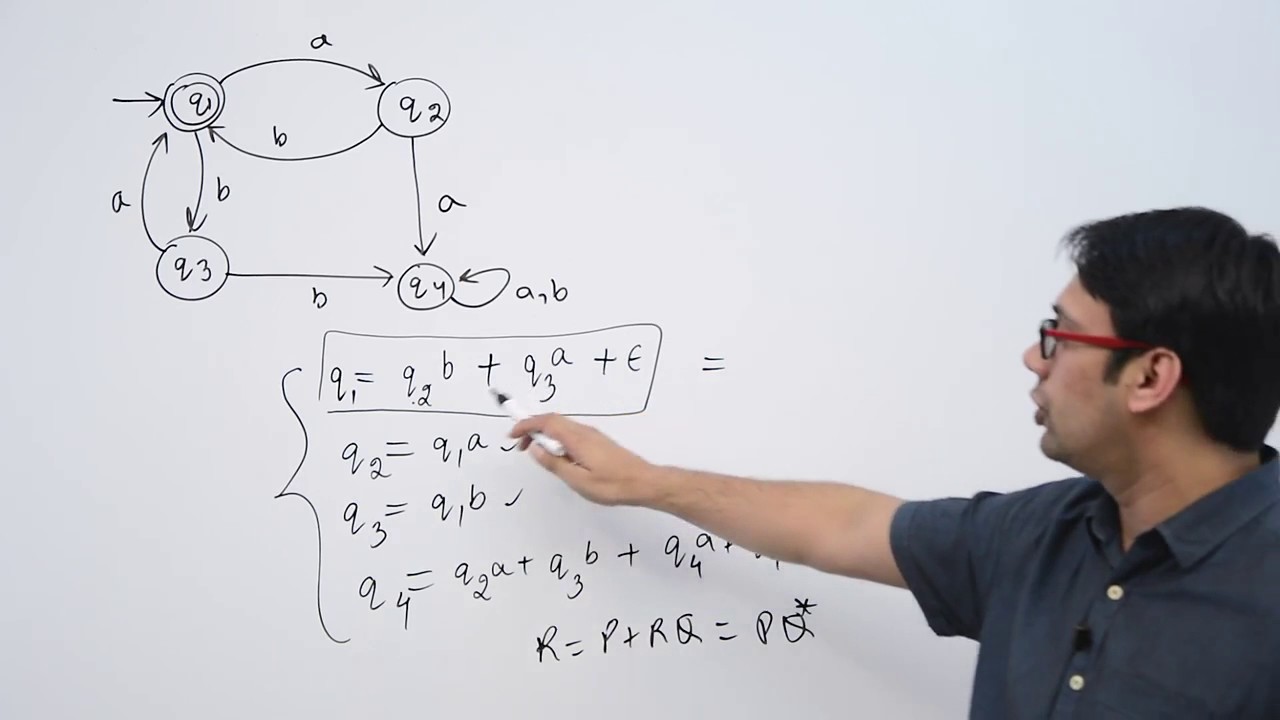 a
q1 q2
b
a b a
q3 q4 a,b
b
q1 = q2b + q3a + ε =
q2 = q1a ✓
q3 = q1b ✓
q4 = q2a + q3b + q4a +
R = P + RQ = PQ*